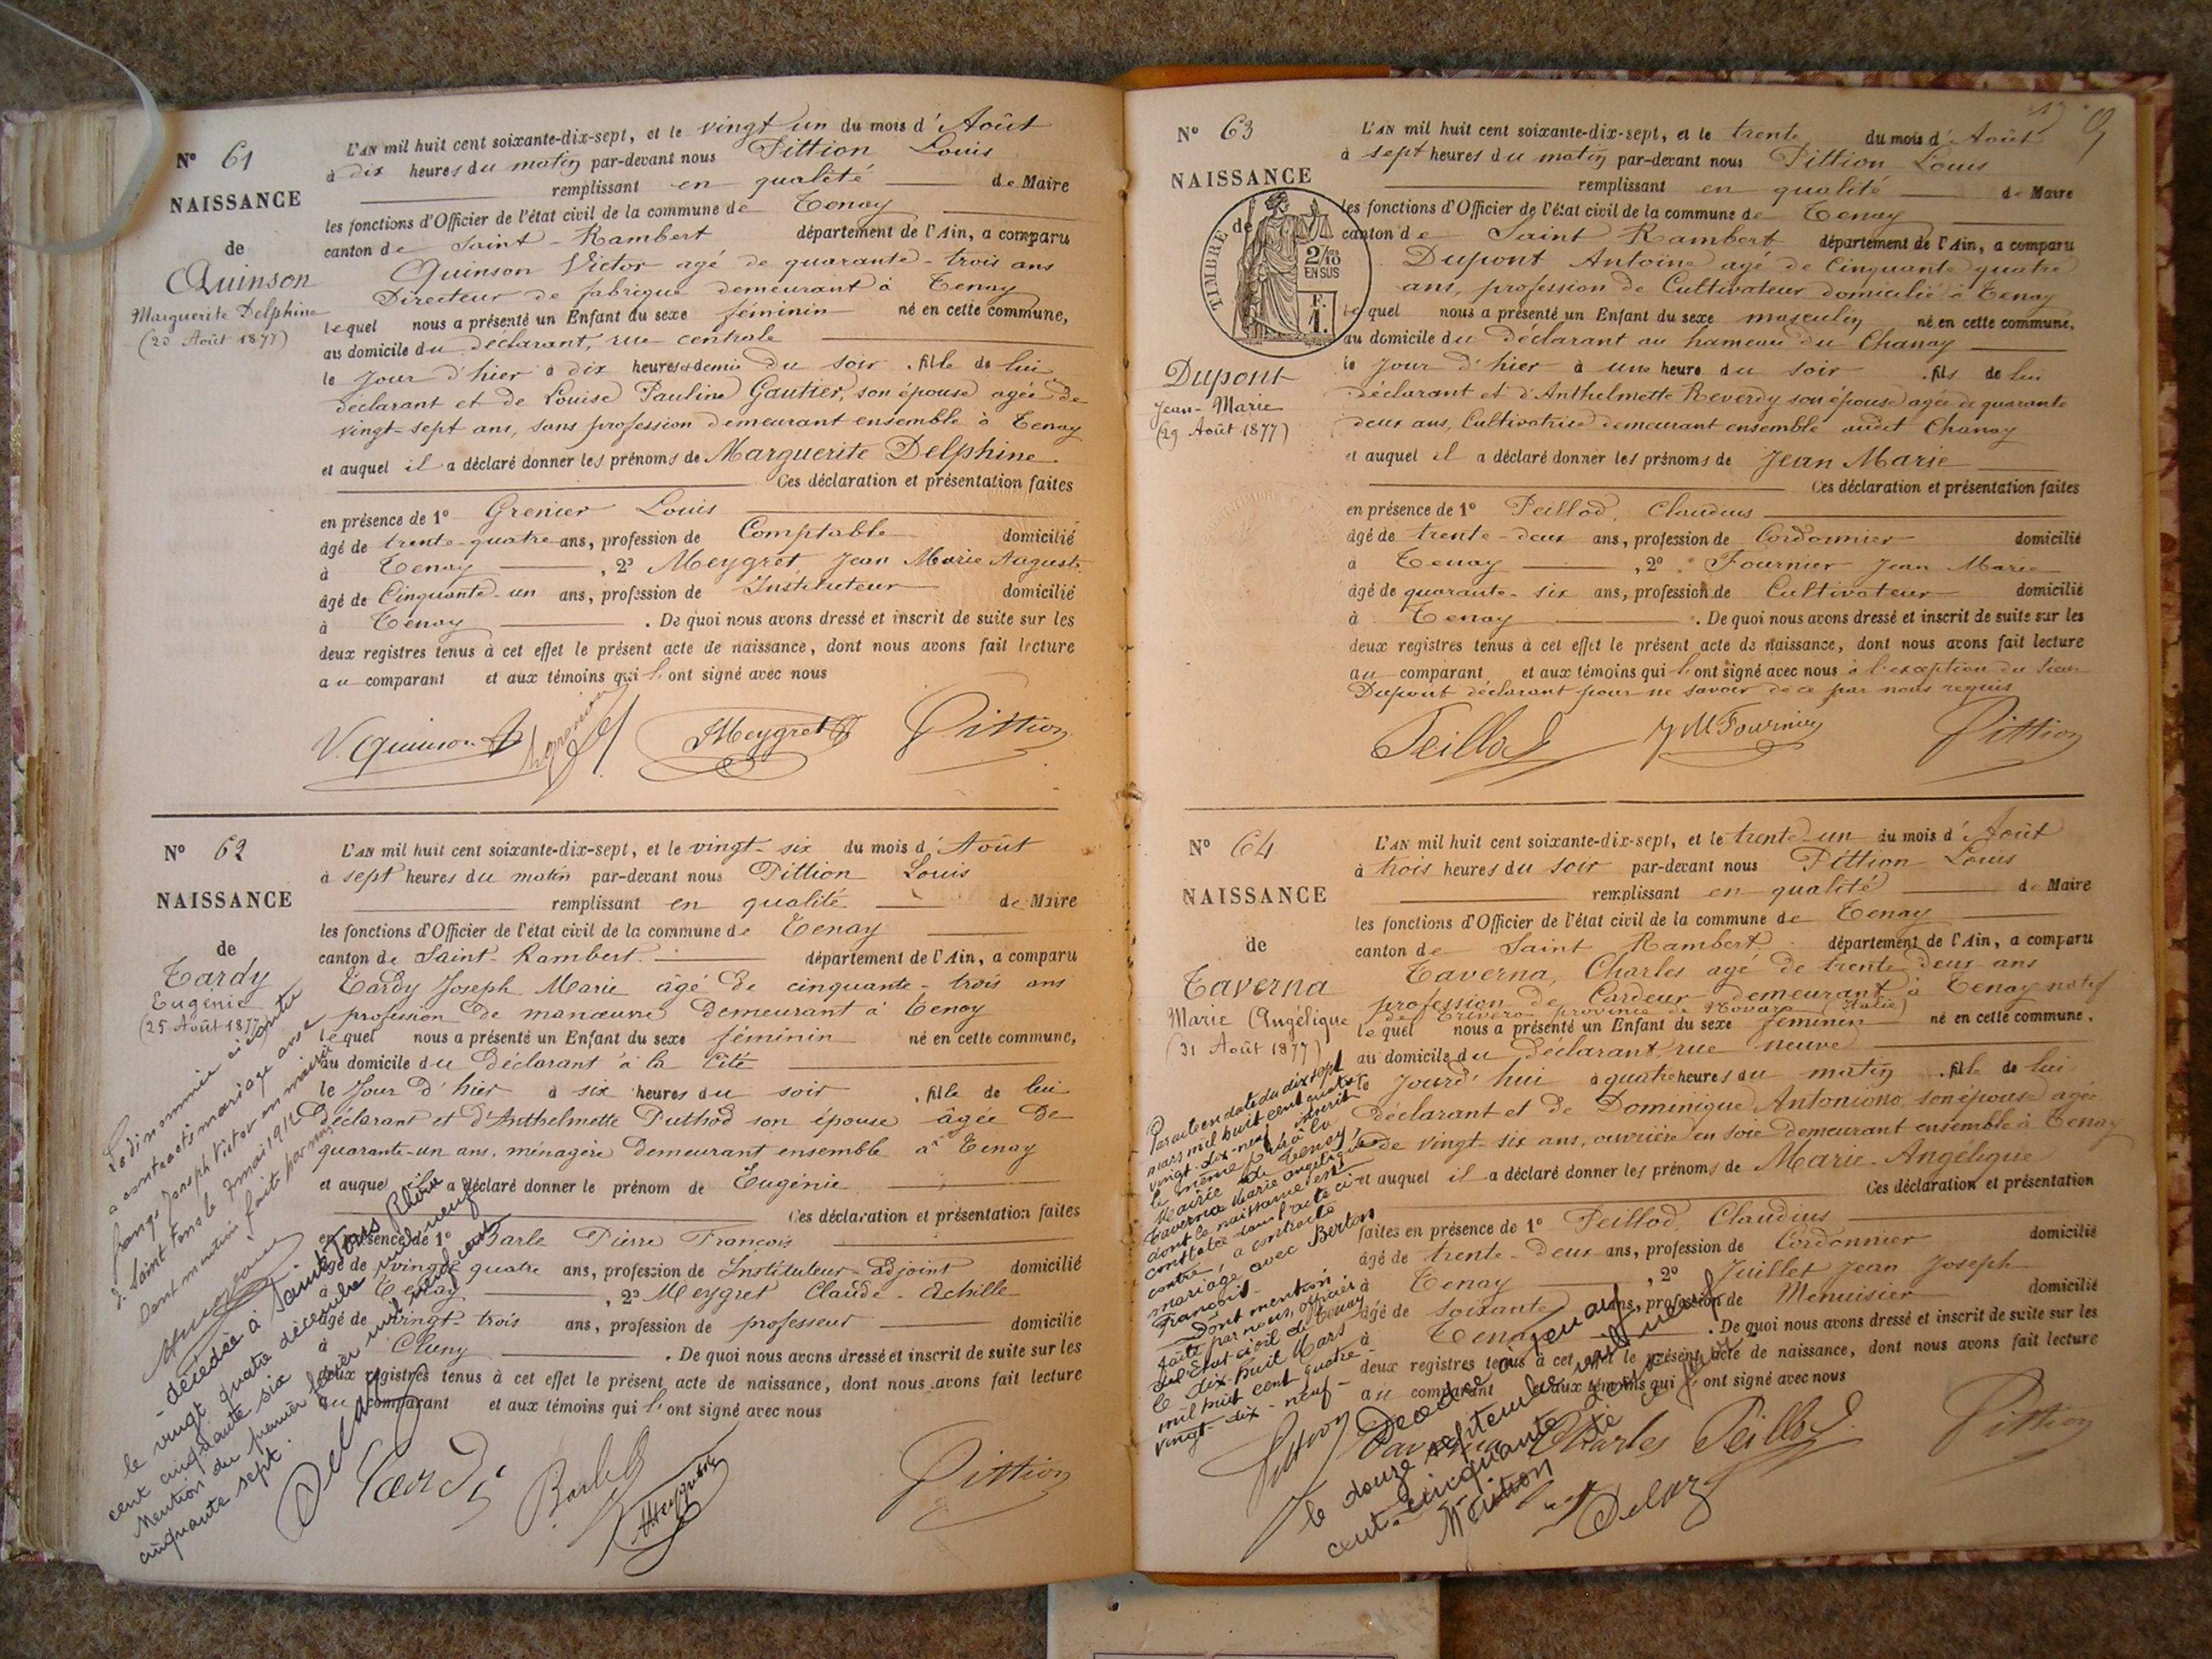 N° 61
NAISSANCE
de
Quinson
Marguerite Delphine
(20 Août 1877)
L'AN mil huit cent soixante-dix-sept, et le vingt un du mois d'Août
à dix heures du matin par-devant nous Pittion Louis
remplissant en qualité de Maire
les fonctions d'Officier de l'état civil de la commune de Tenay
canton de Saint-Rambert département de l'Ain, a comparu
Quinson Victor agé de quarante-trois ans
Directeur de fabrique demeurant à Tenay
lequel nous a présenté un Enfant du sexe féminin né en cette commune,
au domicile du déclarant, rue centrale
le jour d'hier à dix heures & demie du soir . fille de lui
déclarant et de Louise Pauline Gautier, son épouse agée de
vingt-sept ans, sans profession demeurant ensemble à Tenay
et auquel il a déclaré donner les prénoms de Marguerite Delphine
Ces déclaration et présentation faites
en présence de 1° Grenier Louis
âgé de trente-quatre ans, profession de Comptable domicilié
à Tenay , 2° Meygret, Jean Marie Auguste
âgé de Cinquante-un ans, profession de Instituteur domicilié
à Tenay . De quoi nous avons dressé et inscrit de suite sur les
deux registres tenus à cet effet le présent acte de naissance, dont nous avons fait lecture
au comparant et aux témoins qui l'ont signé avec nous
V. Quinson Lgrenier Meygret Pittion
N° 62
NAISSANCE
de
Tardy
Eugénie
(25 Août 1877)
L'AN mil huit cent soixante-dix-sept, et le vingt-six du mois d'Août
à sept heures du matin par-devant nous Pittion Louis
remplissant en qualité de Maire
les fonctions d'Officier de l'état civil de la commune de Tenay
canton de Saint-Rambert département de l'Ain, a comparu
Tardy Joseph Marie âgé de cinquante-trois ans
profession de manœuvre demeurant à Tenay
lequel nous a présenté un Enfant du sexe féminin né en cette commune,
au domicile du déclarant à la Cité
le Jour d'hier à six heures du soir . fille de lui
déclarant et d'Anthelmette Puthod son épouse âgée de
quarante-un ans, ménagère demeurant ensemble à Tenay
et auquel il a déclaré donner le prénom de Eugénie
Ces déclaration et présentation faites
en présence de 1° Barle Pierre François
âgé de vingt quatre ans, profession de Instituteur-adjoint domicilié
à Tenay , 2° Meygret Claude-Achille
âgé de vingt-trois ans, profession de professeur domicilié
à Cluny . De quoi nous avons dressé et inscrit de suite sur les
deux registres tenus à cet effet le présent acte de naissance, dont nous avons fait lecture
au comparant et aux témoins qui l'ont signé avec nous
Tardy Barle Meygret Pittion
La dénommée ci contre
a contracté mariage avec
Joseph Victor en mairie
de Saint Fons le 7 mai 1912
Dont mention faite par nous
décédée à Saint Fons Rhône
le vingt quatre décembre mil neuf
cent cinquante six
Mention du premier février mil neuf cent
cinquante sept.
N° 63
NAISSANCE
de
TIMBRE
2/10 EN SUS
F.
1.
Dupont
Jean-Marie
(29 Août 1877)
L'AN mil huit cent soixante-dix-sept, et le trente du mois d'Août
à sept heures du matin par-devant nous Pittion Louis
remplissant en qualité de Maire
les fonctions d'Officier de l'état civil de la commune de Tenay
canton de Saint Rambert département de l'Ain, a comparu
Dupont Antoine agé de Cinquante quatre
ans, profession de Cultivateur domicilié à Tenay
lequel nous a présenté un Enfant du sexe masculin né en cette commune.
au domicile du Déclarant au hameau du Chanay
le Jour d'hier à une heure du soir . fils de lui
déclarant et d'Anthelmette Reverdy son épouse agée de quarante
deux ans, Cultivatrice demeurant ensemble audit Chanay
et auquel il a déclaré donner les prénoms de Jean Marie
Ces déclaration et présentation faites
en présence de 1° Peillod, Claudius
âgé de trente-deux ans, profession de Cordonnier domicilié
à Tenay , 2° Fournier Jean Marie
âgé de quarante-six ans, profession de Cultivateur domicilié
à Tenay . De quoi nous avons dressé et inscrit de suite sur les
deux registres tenus à cet effet le présent acte de naissance, dont nous avons fait lecture
au comparant et aux témoins qui l'ont signé avec nous à l'exception du sieur
Dupont déclarant pour ne savoir de ce par nous requis
Peillod JM Fournier Pittion
N° 64
NAISSANCE
de
Taverna
Marie Angélique
(31 Août 1877)
L'AN mil huit cent soixante-dix-sept, et le trente-un du mois d'Août
à trois heures du soir par-devant nous Pittion Louis
remplissant en qualité de Maire
les fonctions d'Officier de l'état civil de la commune de Tenay
canton de Saint Rambert département de l'Ain, a comparu
Taverna, Charles agé de trente deux ans
profession de Cardeur demeurant à Tenay natif
de Trivero province de Novara (Italie)
lequel nous a présenté un Enfant du sexe féminin né en cette commune.
au domicile du déclarant, rue neuve
le jourd'hui à quatre heures du matin . fille de lui
déclarant et de Dominique Antoniono, son épouse agée
de vingt-six ans, ouvrière en soie demeurant ensemble à Tenay
et auquel il a déclaré donner les prénoms de Marie-Angélique
Ces déclaration et présentation
faites en présence de 1° Peillod, Claudius domicilié
âgé de trente-deux ans, profession de Cordonnier
à Tenay , 2° Juillet Jean Joseph
âgé de soixante ans, profession de Menuisier domicilié
à Tenay . De quoi nous avons dressé et inscrit de suite sur les
deux registres tenus à cet effet le présent acte de naissance, dont nous avons fait lecture
au comparant et aux témoins qui l'ont signé avec nous
Taverna Charles Peillod Pittion
Par acte en date du dix sept
mars mil huit cent quatre
vingt-dix-neuf inscrit
le même jour à la
Mairie de Tenay,
Taverna Marie angélique
dont la naissance est
constatée dans l'acte ci-
contre, a contracté
mariage avec Berton
François.
Dont mention
faite par nous, officier
de l'Etat civil de Tenay
le dix-huit Mars
mil huit cent quatre-
vingt-dix-neuf-
Pittion
Décédée à
le douze septembre mil neuf
cent-cinquante deux
Mention